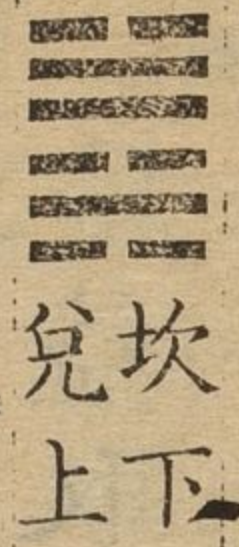 坎下
兌上